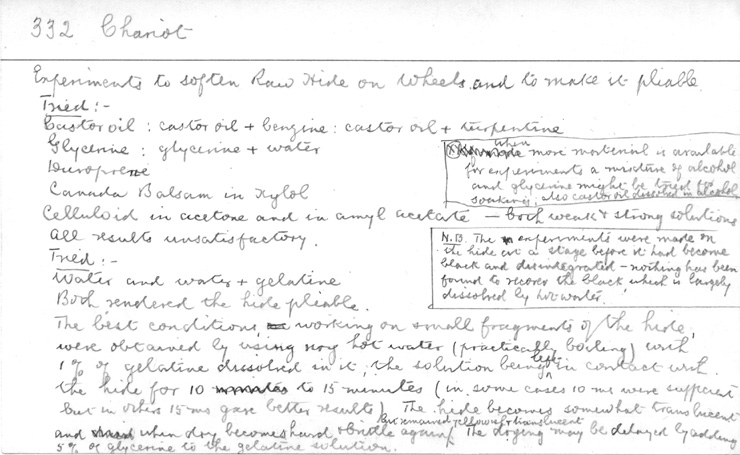 332 Chariot
Experiments to soften Raw Hide on Wheels and to make it pliable
Tried:-
Castor oil : castor oil + benzine : castor oil + turpentine
Glycerine : glycerine + water
Duroprene
Canada Balsam in Xylol
Celluloid in acetone and in amyl acetate — both weak & strong solutions
All results unsatisfactory.
(X) when more material is available
for experiments a mixture of alcohol
and glycerine might be tried for
soaking, also castor oil dissolved in alcohol
Tried:-
Water and water + gelatine
Both rendered the hide pliable.
N.B. The experiments were made on
the hide at a stage before it had become
black and disintegrated – nothing has been
found to recover the black, which is largely
dissolved by hot water.
The best conditions, working on small fragments of the hide,
were obtained by using very hot water (practically boiling) with
1% of gelatine dissolved in it, the solution being left in contact with
the hide for 10 to 15 minutes (in some cases 10 ms were sufficient
but in others 15 ms gave better results) The hide becomes somewhat translucent
and when dry becomes hard & brittle again but remained yellowish & translucent The drying may be delayed by adding
5% of glycerine to the gelatine solution.